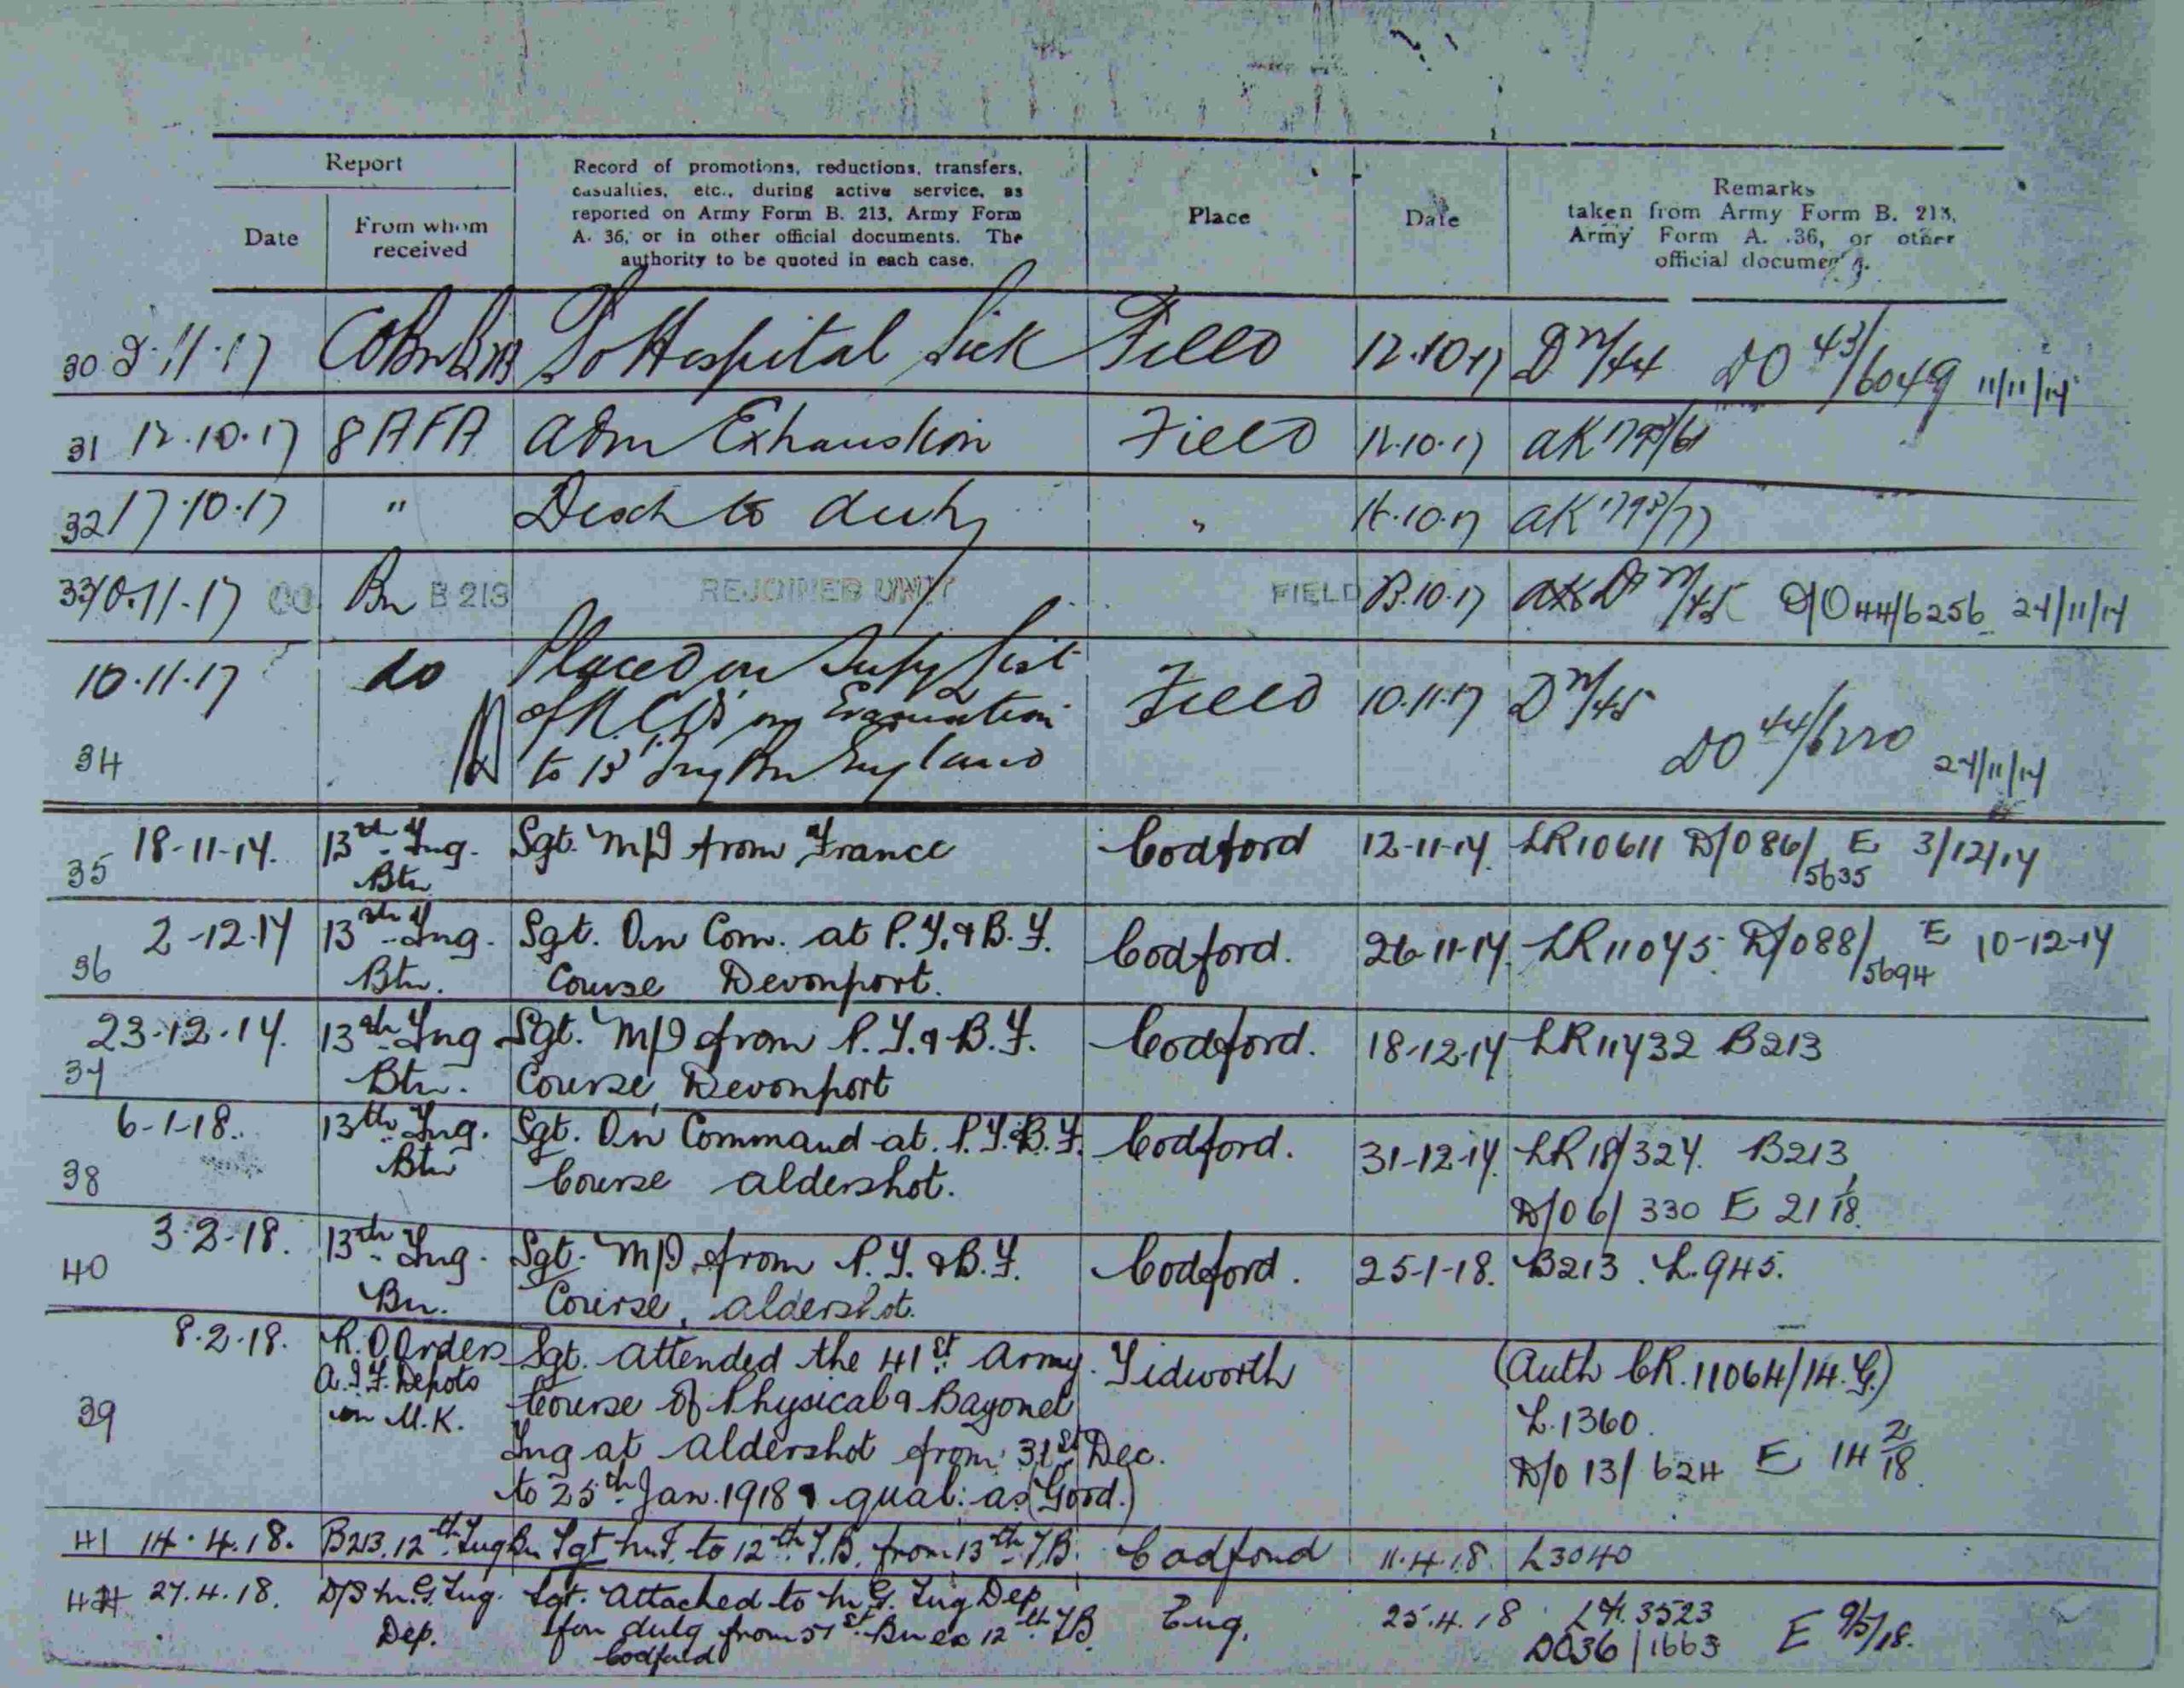 Report
Record of promotions, reductions, transfers,
casualties, etc., during active service, as
reported on Army Form B. 213, Army Form
A. 36, or in other official documents. The
authority to be quoted in each case.
Date
From whom
received
Place
Date
Remarks
taken from Army Form B. 213,
Army Form A. 36, or other
official documents.
30 To Hospital Sick Field 12.10.17
31 12.10.17 8 AFA adm Exhaustion Field
32 17.10.17 " Disch to duty "
33 10.11.17 CO Bn B 213 REJOINED UNIT FIELD
10.11.17 do Placed on Supy List Field 10.11.17
Evacuation
34 to 13 Trg Bn England
18-11-17. 13th Trng. Sgt. M/I from France Codford 12-11-17. LR10611 D/O 86/5635 E 3/12/17
35 Btn
2-12-17 13th Trng. Sgt. On Com. at P.T. & B.F. Codford. 26-11-17. LR11075. D/O 88/5694 E 10-12-17
36 Btn. Course Devonport.
23-12-17. 13th Trng Sgt. M/I from P.T. & B.F. Codford. 18-12-17 LR11732 B213
37 Btn. Course, Devonport
6-1-18. 13th Trng. Sgt. On Command at. P.T. & B.F. Codford. 31-12-17. LR18/327. B213
38 Btn Course aldershot. D/O 6/330 E 21 1/18.
3-2-18. 13th Trng. Sgt. M/I from P.T. & B.F. Codford. 25-1-18. B213. L.945.
40 Bn. Course, aldershot.
8-2-18. R.O Orders Sgt. attended the 41st Army. Tidworth (Auth CR.11064/14.G.)
A.I.F. Depots Course of Physical & Bayonet L.1360.
39 in U.K. Tng at aldershot from 31st Dec. D/O 13/624 E 14 2/18
to 25th Jan. 1918 & qual: as (Good.)
41 14.4.18. B213. 12th Trng Bn Sgt to 12th T.B. from 13th T.B. Codford 11.4.18. L3040
27.4.18. M.G. Trng. Sgt. Attached to M.G. Trng Dep Eng. 25.4.18 3523
Dep. for duty from 51st Bn ex 12th TB DO36/1663 E 9/5/18.